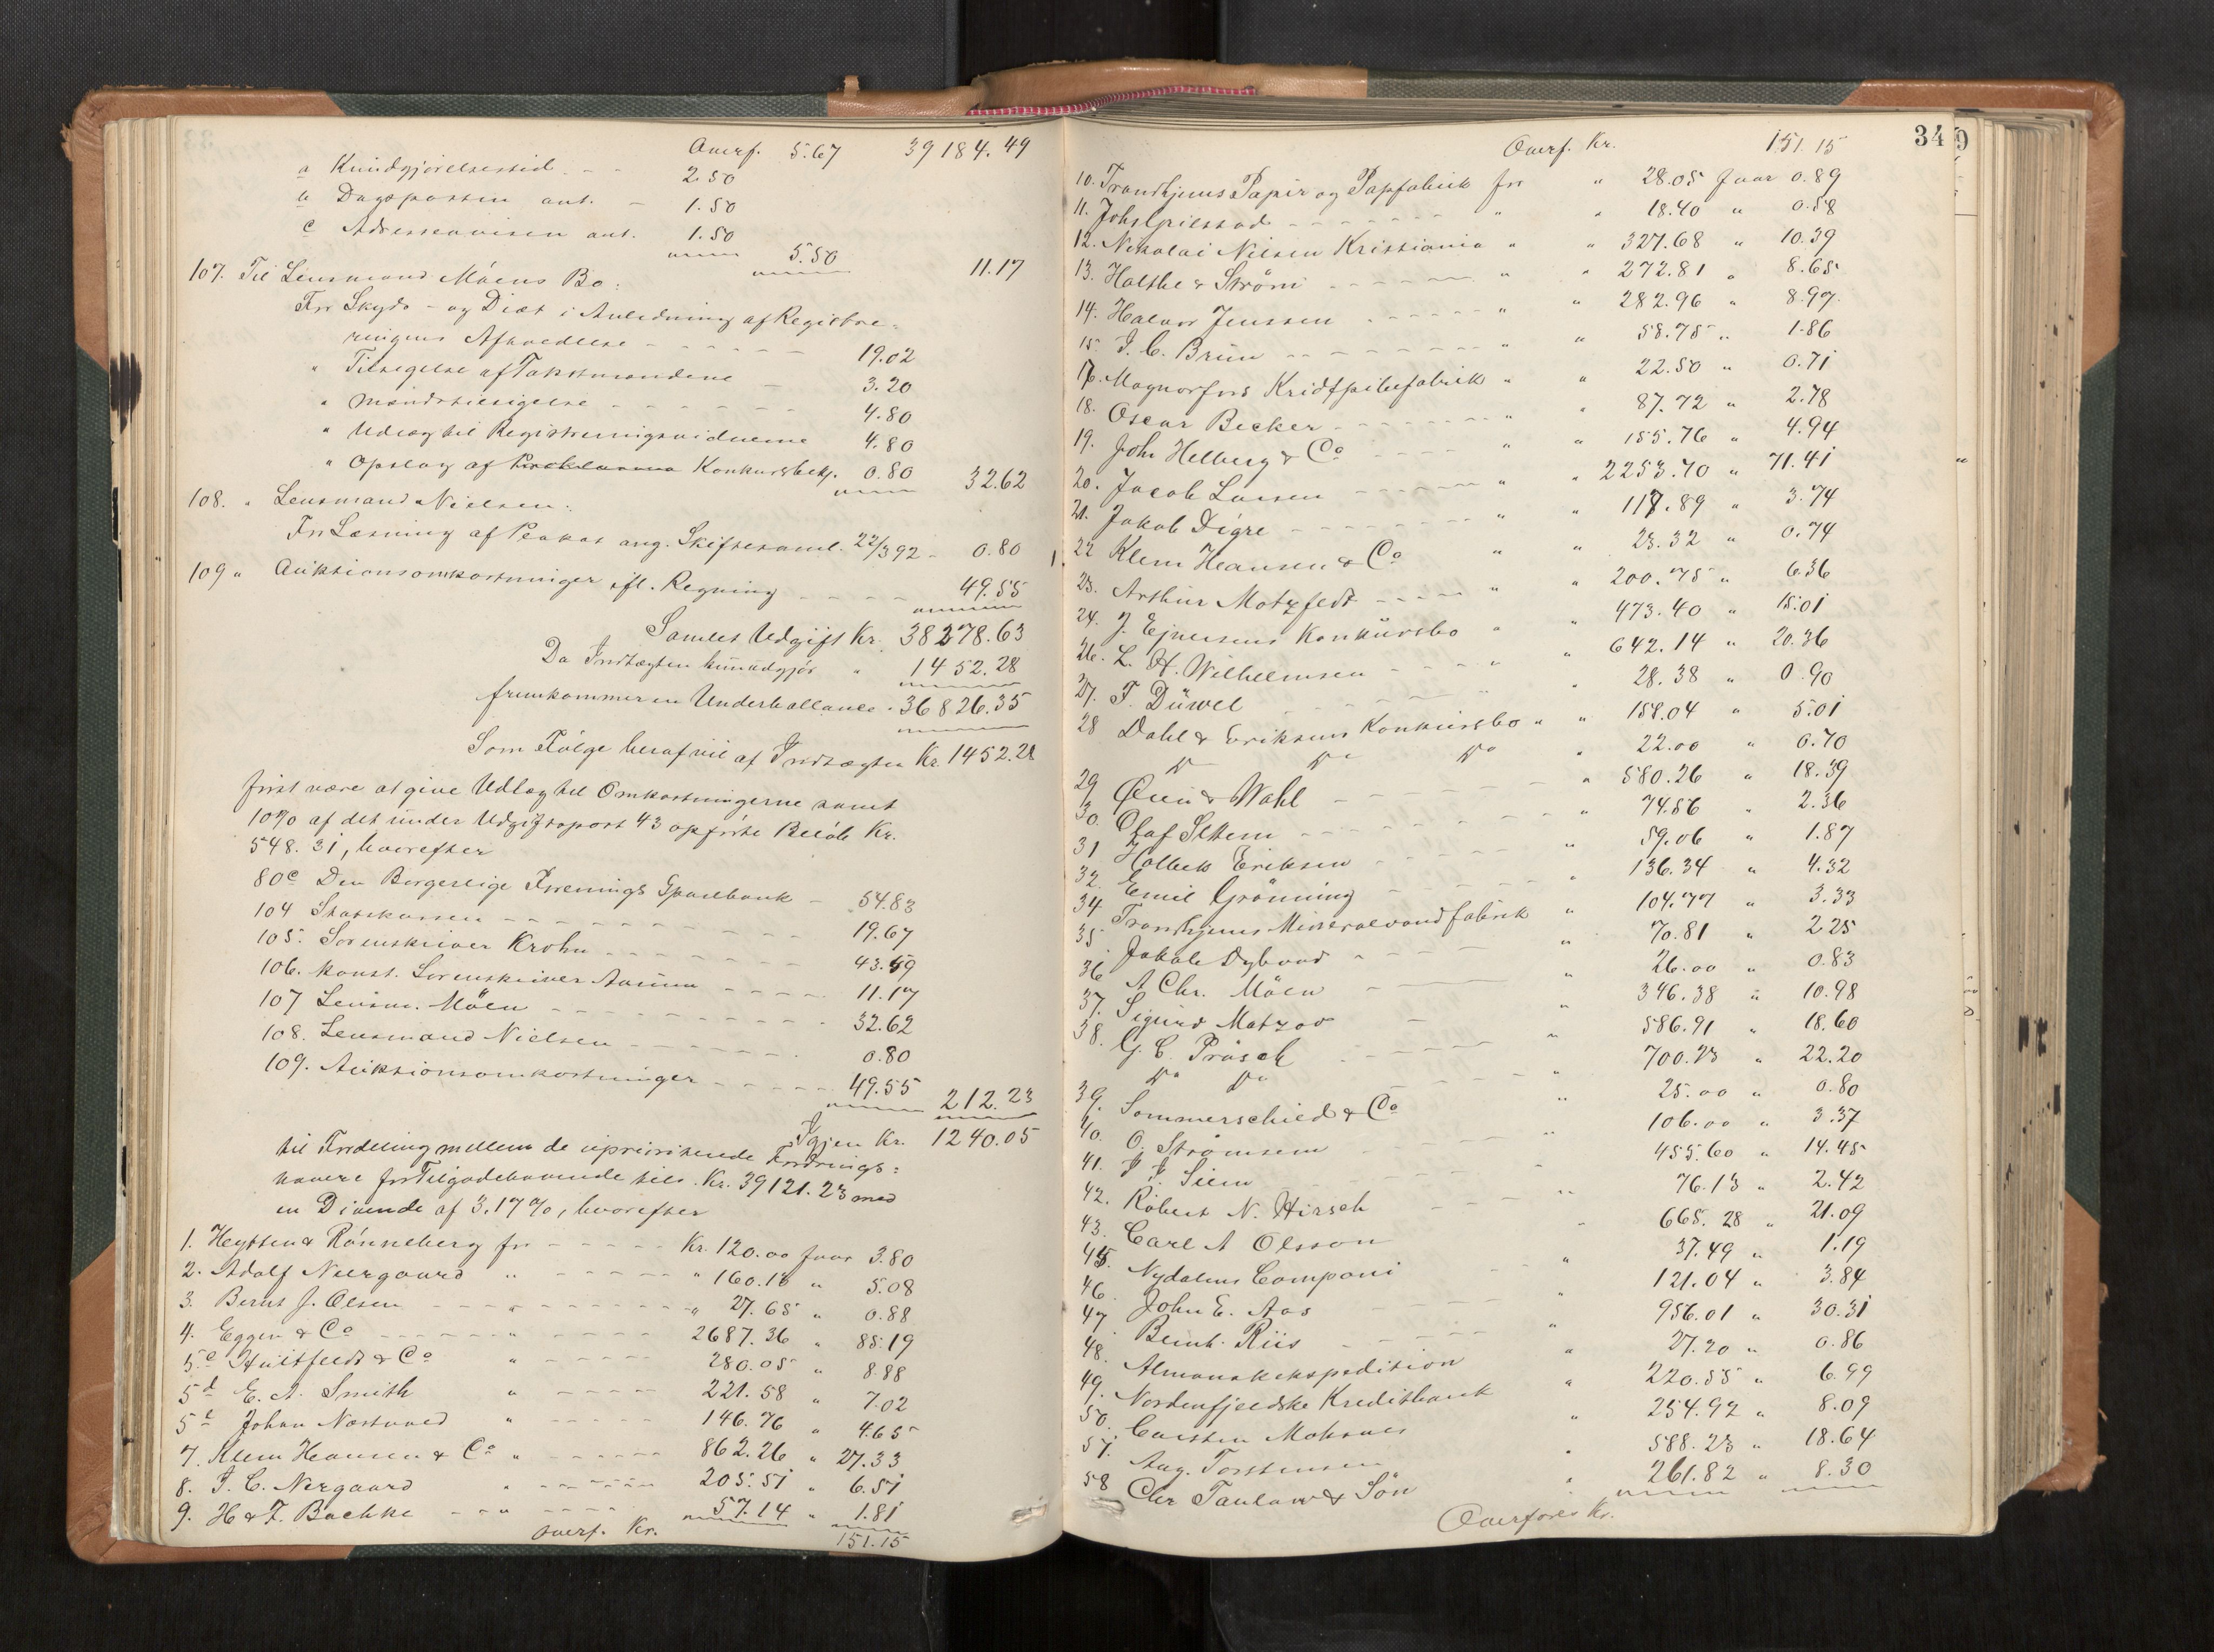 Overf. 5.67 39184.49
a Kundgjørelsestid. - - 2.50
b Dagsposten ant. - 1.50
c Adresseavisen ant. 1.50
5.50 11.17
107. Til Lensmand Möens Bo:
For Skyds- og Diæt i Anledning af Registre-
ringens Afholdelse - - - - - 19.02
" Tilsigelse af Takstmændene - 3.20
" Mandstilsigelse - - - - - - 4.80
" Udlæg til Registreringsvidnerne 4.80
" Opslag af Konkursbekj. 0.80 32.62
108. " Lensmand Nielsen:
For Læsning af Plakat ang. Skiftesaml. 22/3 92 - 0.80
109 " Auktionsomkostninger efl. Regning - - - - - 49.55
Samlet Udgift Kr. 38278.63
Da Indtægten kun udgjør " 1452.28
fremkommer en Underballance " 36826.35
Som Følge heraf vil af Indtægten Kr. 1452.28
først være at give Udlæg til Omkostningerne samt
10% af det under Udgiftspost 43 opførte Beløb Kr.
548.31, hvorefter
80c Den Borgerlige Forenings Sparebank - 54.83
104 Statskassen - - - - - - - - - 19.67
105. Sorenskriver Krohn - - - - - - - 43.59
106. konst. Sorenskriver Aasum - - - - 11.17
107 Lensm. Möen - - - - - - - - - 32.62
108. Lensmand Nielsen - - - - - - - 0.80
109. Auktionsomkostninger - - - - - 49.55 212.23
Igjen Kr. 1240.05
til Fordeling mellem de uprioriterede Fordrings-
havere for Tilgodehavende tils. Kr. 39121.23 med
en Dividende af 3.17%, hvorefter
1. Heyften & Rönneberg for - - - - - Kr. 120.00 faar 3.80
2. Adolf Neergaard " - - - - - " 160.18 " 5.08
3. Bernt J. Olsen - - - " - - - - - " 27.65 " 0.88
4. Eggen & Co - - - - - " - - - - 2687.36 " 85.19
5c Huitfeldt & Co " - - - - - 280.05 " 8.88
5d E. A. Smith " - - - - 221.58 " 7.02
5e Johan Næstvold " - - - - - 146.76 " 4.65
7. Klem Hansen & Co " - - - - - 862.26 " 27.33
8. I. C. Nergaard " - - - - - 205.51 " 6.51
9. H & F. Bachke - - " - - - - 57.14 " 1.81
Overf. Kr. 151.15
34
Overf. Kr. 151.15
10. Trondhjems Papir og Papfabrik for " 28.05 faar 0.89
11. Johs Grilstad - - - - - - - " " 18.40 " 0.58
12. Nikolai Nilsen Kristiania " " 327.68 " 10.39
13. Holthe & Ström - - - - - - " " 272.81 " 8.65
14. Halvor Jenssen - - - - - - " " 282.96 " 8.97
15. I. C. Brun - - - - - - - - " " 58.75 " 1.86
16. Magnorfos Kridtpibefabrik " " 22.50 " 0.71
18. Oscar Becker - - - - - - - " " 87.72 " 2.78
19. Joh Helberg & Co - - - - " " 155.76 " 4.94
20. Jacob Larsen - - - - - - " " 2253.70 " 71.41
21. Jakob Digre - - - - - - - " " 117.89 " 3.74
22 Klem Hansen & Co " " 23.32 " 0.74
23. Arthur Motzfeldt - - - - - " " 200.75 " 6.36
24. J. Ejnersens Konkursbo " " 473.40 " 15.01
26. L. H. Wilhelmsen - - - - " " 642.14 " 20.36
27. F. Düwel - - - - - " " 28.38 " 0.90
28 Dahl & Eriksens Konkursbo " " 158.04 " 5.01
Do Do Do " 22.00 " 0.70
29 Öien & Wahl - - - - - - - " 580.26 " 18.39
30. Olaf Sltem - - - - - - - - " 74.56 " 2.36
31 Holbek Eriksen - - - - - - " 59.06 " 1.87
32. Emil Grönning - - - - - " 136.34 " 4.32
34. Trondhjems Mineralvandfabrik " 104.77 " 3.33
35. Jakob Dybvad - - - - " 70.81 " 2.25
36 A Chr. Möen - - - " 26.00 " 0.83
37. Sigurd Matzow - " 346.38 " 10.98
38. G. C. Präsch - - - - - " 586.91 " 18.60
Do Do - - - - - " 700.23 " 22.20
39. Sommerschield & Co " 25.00 " 0.80
40. O. Strömsem - " 106.00 " 3.37
41. I. I. Siem - - - - - 455.60 " 14.45
42. Robert N. Hirsch - - - - " 76.13 " 2.42
43. Carl A Olsson " 665.28 " 21.09
45. Nydalens Compani - - " 37.49 " 1.19
46 John E. Aas - - - - - " 121.04 " 3.84
47 Bernh. Riis - - - - - " 956.01 " 30.31
48. Almanakekspedition " 27.20 " 0.86
49. Nordenfjeldske Kreditbank " 220.55 " 6.99
50. Carsten Mohsaas " 254.92 " 8.09
57. Aug. Torstensen " 588.23 " 18.64
58 Chr Taulow & Sön " 261.82 " 8.30
Overføres Kr.